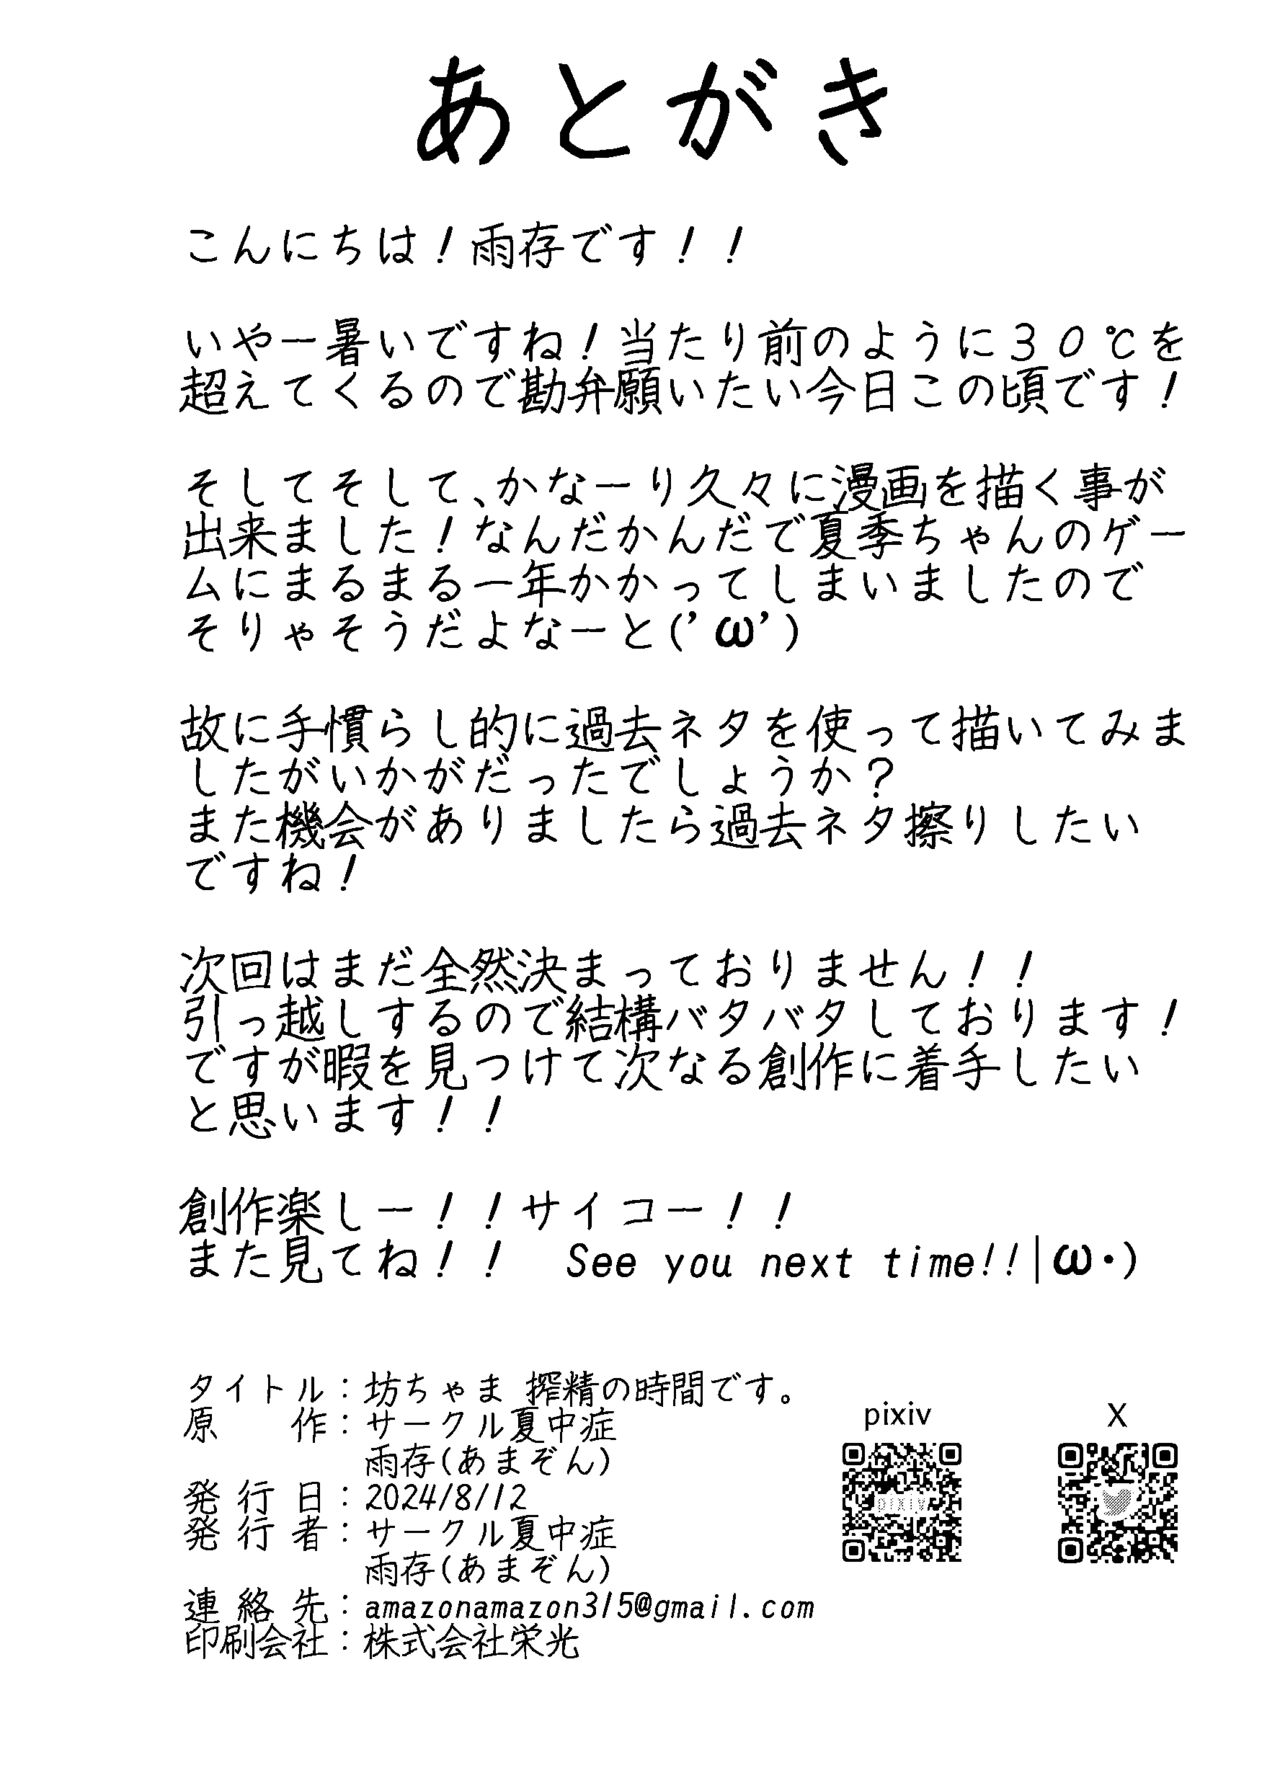 あとがき
こんにちは！雨存です！！
いやー暑いですね！当たり前のように３０℃を
超えてくるので勘弁願いたい今日この頃です！
そしてそして、かなーり久々に漫画を描く事が
出来ました！なんだかんだで夏季ちゃんのゲー
ムにまるまる一年かかってしまいましたので
そりゃそうだよなーと(’ω’)
故に手慣らし的に過去ネタを使って描いてみま
したがいかがだったでしょうか？
また機会がありましたら過去ネタ擦りしたい
ですね！
次回はまだ全然決まっておりません！！
引っ越しするので結構バタバタしております！
ですが暇を見つけて次なる創作に着手したい
と思います！！
創作楽しー！！サイコー！！
また見てね！！　See you next time!!|ω・)
タイトル：坊ちゃま 搾精の時間です。
原　　作：サークル夏中症
雨存(あまぞん)
発 行 日：2024/8/12
発 行 者：サークル夏中症
雨存(あまぞん)
連 絡 先：amazonamazon315@gmail.com
印刷会社：株式会社栄光
pixiv
X
pixiv